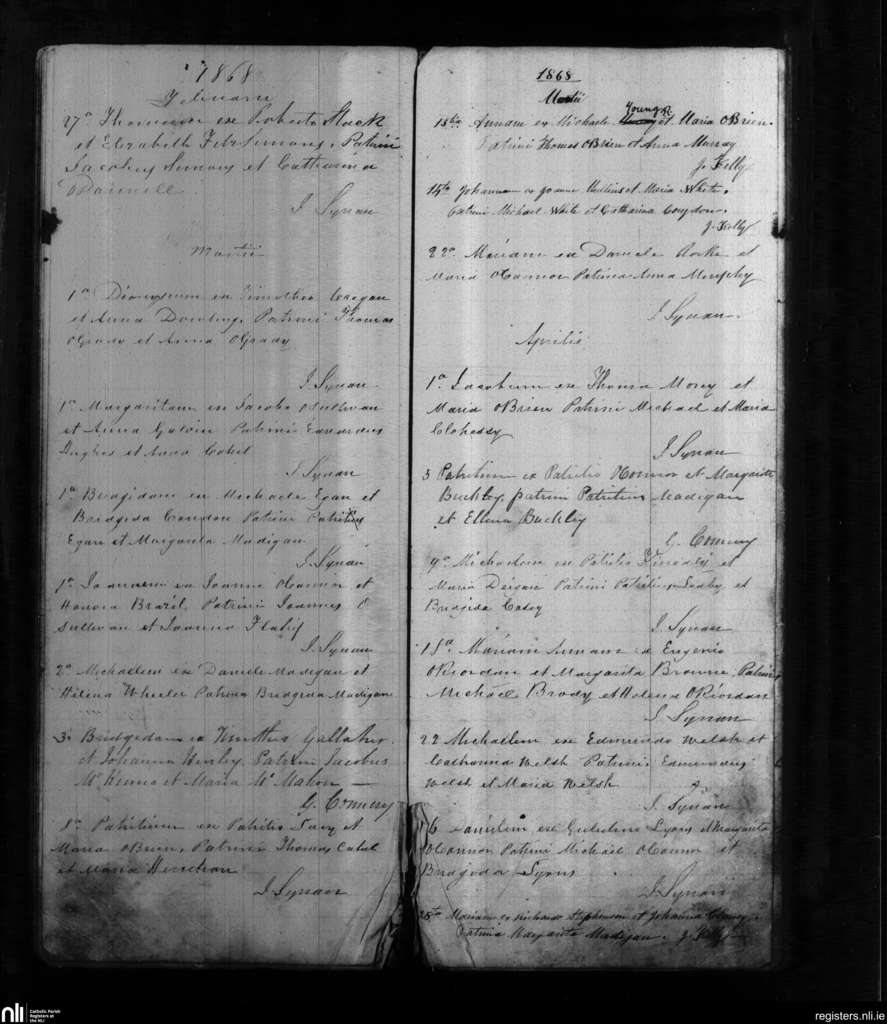 1868
27a Thomam ex Roberto Stack
et Elizabeth Fitzsimons, Patrini
Jacobus Simons et Catherina
ODannell
J. Synan
Martii
1a Dionysium ex Timotheo Cregan
et Anna Dowling, Patrini Thomas
OGrady et Anna OGrady
J. Synan
1a Margaritam ex Jacobo OSullivan
et Anna Galvin Patrinis Edwardus
Hughes et Anna Cahil
J. Synan
1a Bridgidam ex Michaele Egan et
Bridgida Condon Patrini Patritius
Egan et Margarita Madigan
J. Synan
1a Joannem ex Joanne OConnor et
Honora Brazil, Patrini Joannes O
Sullivan et Joanna
J. Synan
2a Michaelem ex Daniele Madigan et
Helena Wheeler Patrina Bridgida Madigan
3. Bridgedam ex Timotheo Gallaher
et Johanna Patrini Jacobus
McKenna et Maria McMahon —
G. Connery
8a Patritium ex Patritio et
Maria OBrien, Patrini Thomas Cahil
et Maria
J. Synan
1868
Martii
15th Annam ex Michaele Young et Maria OBrien.
Patrini Thomas OBrien et Anna Murray
J. Kelly
14th Johannam ex Joanne Mullins et Maria White.
Patrini Michael White et Catharina
J. Kelly
22a Mariam ex Daniele et
Maria OConnor Patrina Anna Murphy
J. Synan.
Aprilis
1a Jacobum ex Thoma Morey et
Maria OBrien Patrini Michael et Maria
Clohessy
J. Synan
3 Patritium ex Patritio OConnor et Margarita
Buckley, patrini Patritius Madigan
et Ellena Buckley
G. Connery
9a Michaelem ex Patritio et
Maria Patrini Patritius et
Bridgida Casey
J. Synan
15a Mariam Annam ex Eugenio
ORiordan et Margarita Browne, Patrini
Michael Brody et Helena ORiordan
J. Synan
22 Michaelem ex Edmundo Welsh et
Catharina Welsh Patrinis Edmundus
Welsh et Maria Welsh
J. Synan
Danielem ex Lyons et Margarita
OConnor Patrini Michael OConnor et
Bridgida Lyons
J. Synan
28th Mariam ex Richardo Stephenson et Johanna
Patrina Margarita Madigan. J. Kelly
nli
Catholic Parish
Registers at
the NLI
registers.nli.ie